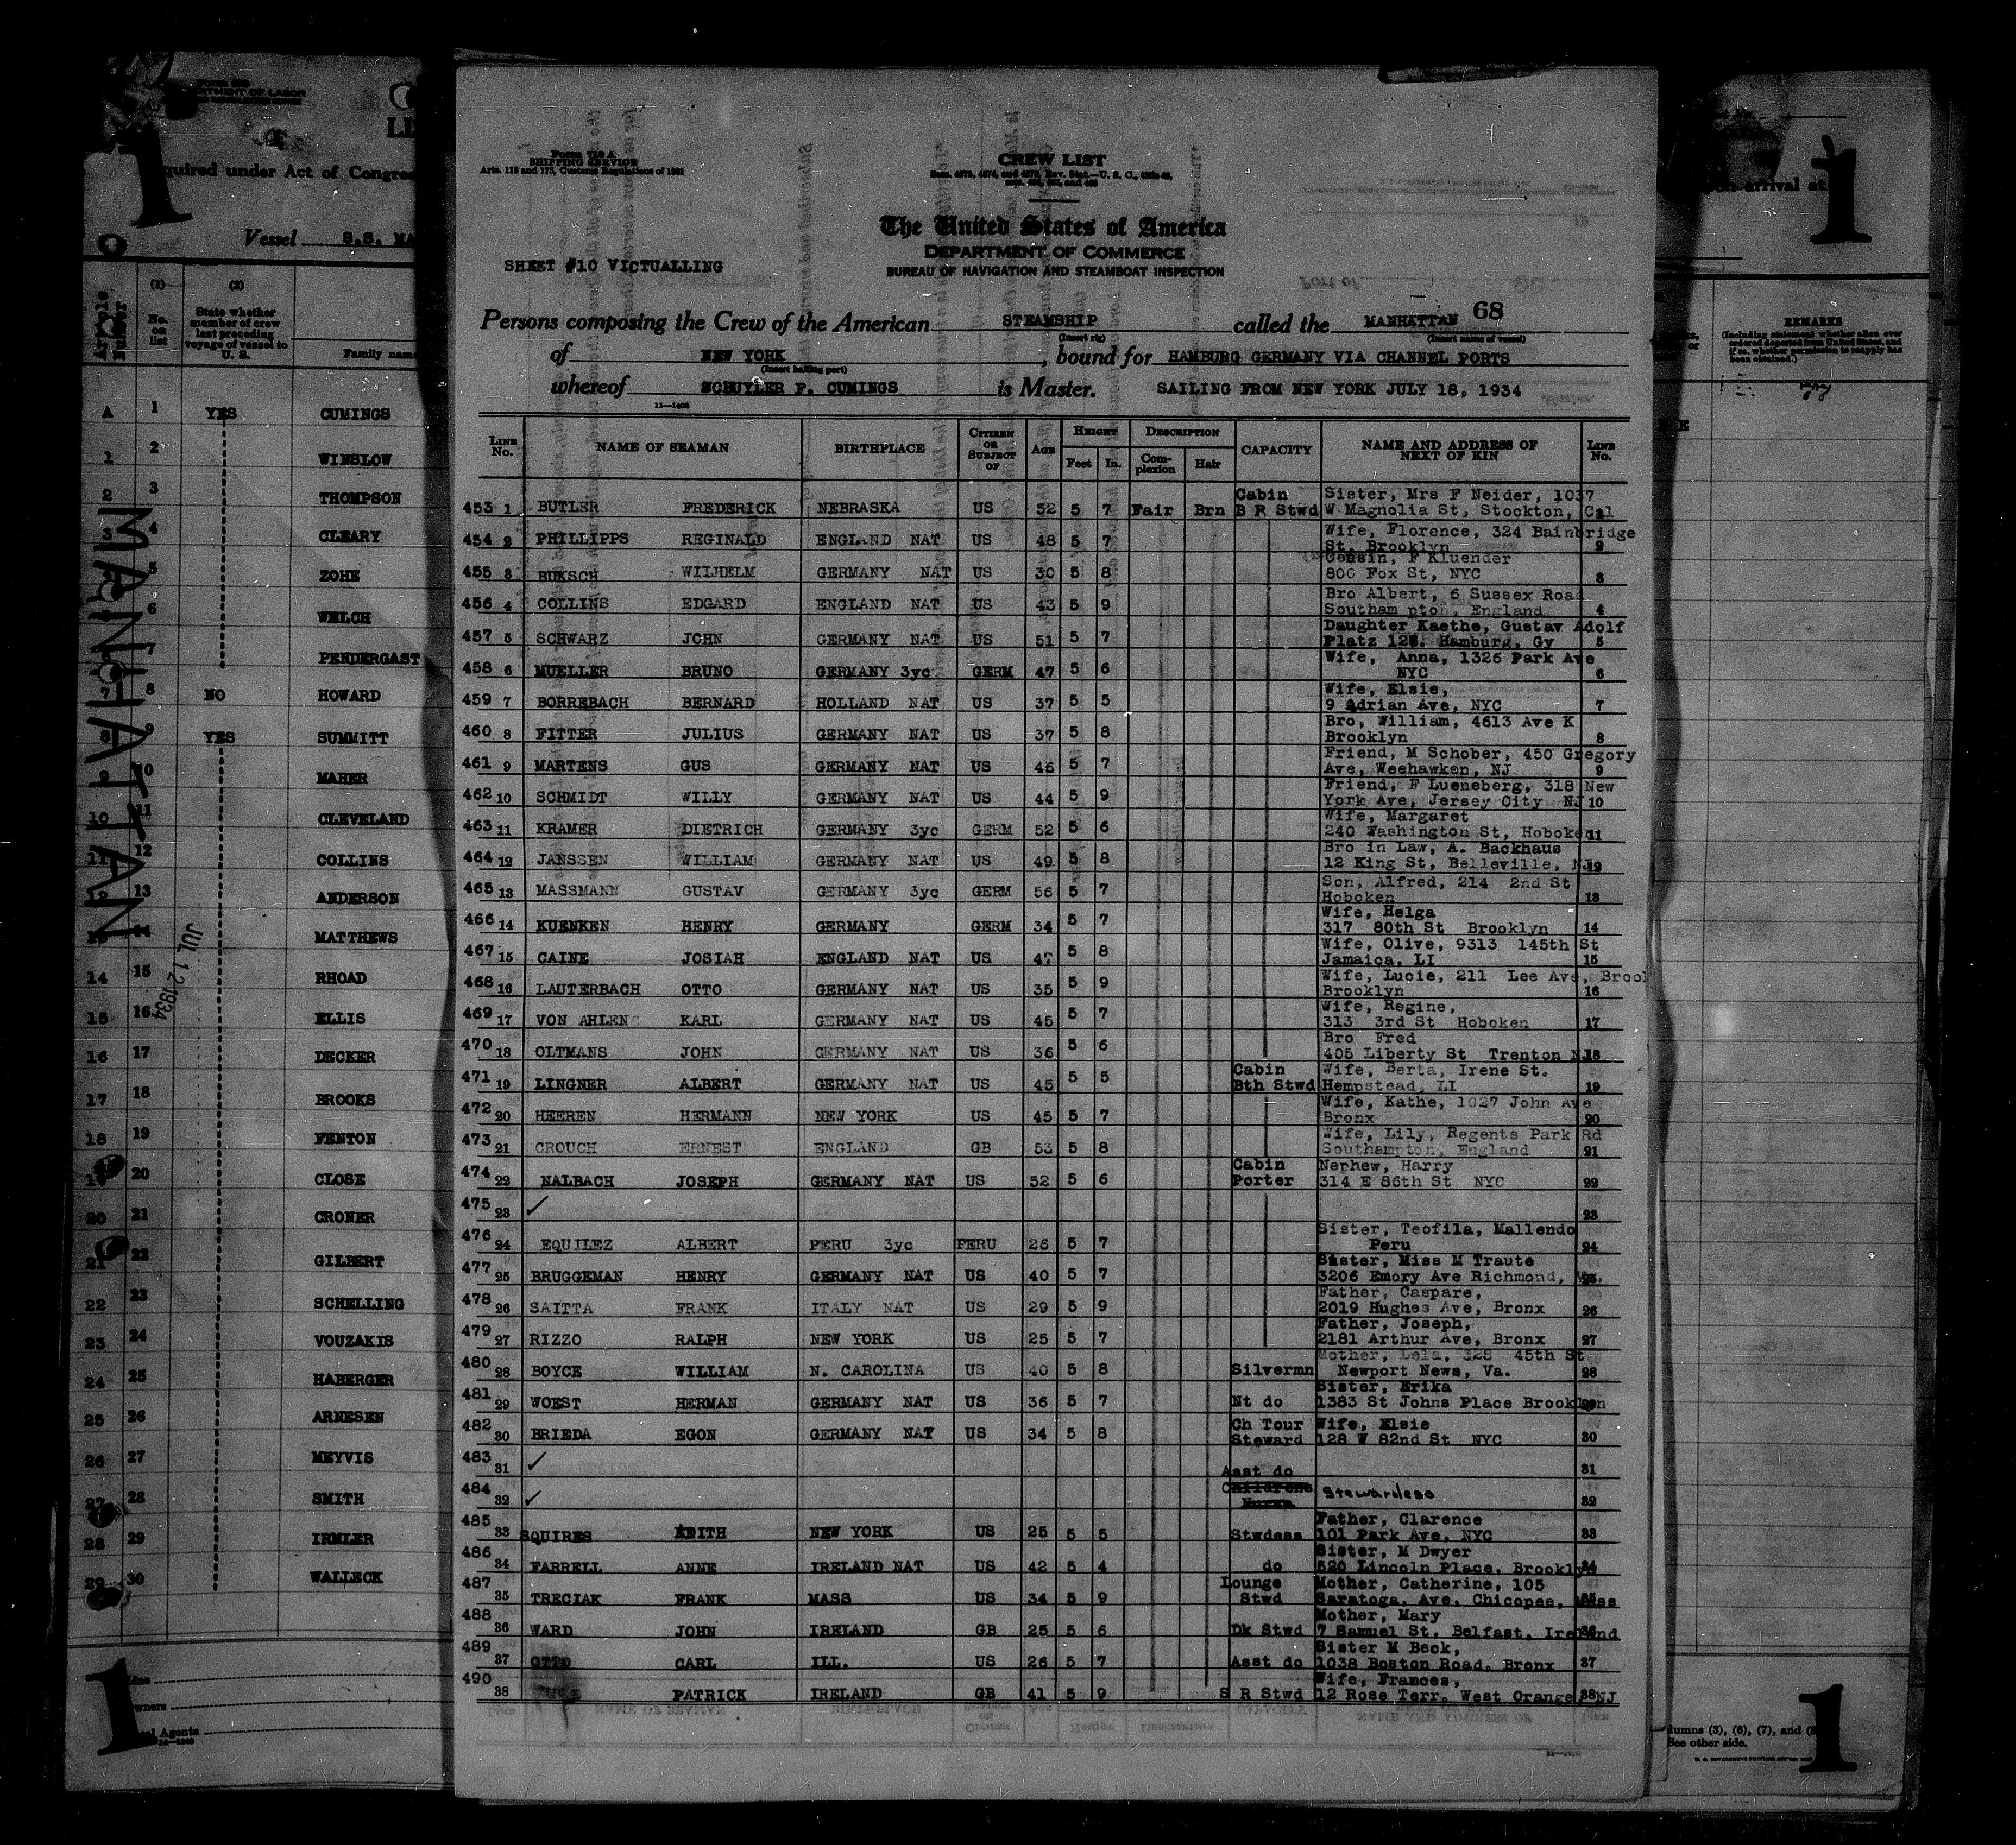 quired under Act of Congre
Vessel S.S. MA
(1) (2)
No. on list
State whether member of crew last preceding voyage of vessel to U. S.
Family name
A 1 YES CUMINGS
1 2 WINSLOW
2 3 THOMPSON
3 4 CLEARY
5 ZOHE
6 WELCH
PENDERGAST
7 8 NO HOWARD
8 9 YES SUMMITT
9 10 MAHER
10 11 CLEVELAND
11 12 COLLINS
12 13 ANDERSON
MATTHEWS
14 15 RHOAD
15 16 ELLIS
16 17 DECKER
17 18 BROOKS
18 19 FENTON
20 CLOSE
20 21 CRONER
21 22 GILBERT
22 23 SCHELLING
23 24 VOUZAKIS
24 25 HABERGER
25 26 ARNESEN
26 27 MEYVIS
27 28 SMITH
28 29 IRMLER
29 30 WALLECK
MANHATTAN
JUL 12 1934
1
1
Form 710 A
SHIPPING SERVICE
Arts. 113 and 175, Customs Regulations of 1931
CREW LIST
The United States of America
DEPARTMENT OF COMMERCE
BUREAU OF NAVIGATION AND STEAMBOAT INSPECTION
SHEET #10 VICTUALLING
68
Persons composing the Crew of the American STEAMSHIP called the MANHATTAN
(Insert rig) (Insert name of vessel)
of NEW YORK, bound for HAMBURG GERMANY VIA CHANNEL PORTS
(Insert hailing port)
whereof SCHUYLER F. CUMINGS is Master. SAILING FROM NEW YORK JULY 18, 1934
LINE No. NAME OF SEAMAN BIRTHPLACE CITIZEN OR SUBJECT OF AGE HEIGHT Feet In. DESCRIPTION Complexion Hair CAPACITY NAME AND ADDRESS OF NEXT OF KIN LINE No.
453 1 BUTLER FREDERICK NEBRASKA US 52 5 7 Fair Brn Cabin B R Stwd Sister, Mrs F Neider, 1037
W Magnolia St, Stockton, Cal
454 2 PHILLIPPS REGINALD ENGLAND NAT US 48 5 7 Wife, Florence, 324 Bainbridge
St, Brooklyn 2
455 3 BUKSCH WILHELM GERMANY NAT US 30 5 8 Cousin, F Kluender
800 Fox St, NYC 3
456 4 COLLINS EDGARD ENGLAND NAT US 43 5 9 Bro Albert, 6 Sussex Road
Southam pton, England 4
457 5 SCHWARZ JOHN GERMANY NAT US 51 5 7 Daughter Kaethe, Gustav Adolf
Platz 128. Hamburg, Gy 5
458 6 MUELLER BRUNO GERMANY 3yc GERM 47 5 6 Wife, Anna, 1326 Park Ave
NYC 6
459 7 BORREBACH BERNARD HOLLAND NAT US 37 5 5 Wife, Elsie,
9 Adrian Ave, NYC 7
460 8 FITTER JULIUS GERMANY NAT US 37 5 8 Bro, William, 4613 Ave K
Brooklyn 8
461 9 MARTENS GUS GERMANY NAT US 46 5 7 Friend, M Schober, 450 Gregory
Ave, Weehawken, NJ 9
462 10 SCHMIDT WILLY GERMANY NAT US 44 5 9 Friend, F Lueneberg, 318 New
York Ave, Jersey City NJ 10
463 11 KRAMER DIETRICH GERMANY 3yc GERM 52 5 6 Wife, Margaret
240 Washington St, Hoboken 11
464 12 JANSSEN WILLIAM GERMANY NAT US 49 5 8 Bro in Law, A. Backhaus
12 King St, Belleville, NJ 12
465 13 MASSMANN GUSTAV GERMANY 3yc GERM 56 5 7 Son, Alfred, 214 2nd St
Hoboken 13
466 14 KUENKEN HENRY GERMANY GERM 34 5 7 Wife, Helga
317 80th St Brooklyn 14
467 15 CAINE JOSIAH ENGLAND NAT US 47 5 8 Wife, Olive, 9313 145th St
Jamaica, LI 15
468 16 LAUTERBACH OTTO GERMANY NAT US 35 5 9 Wife, Lucie, 211 Lee Ave, Brool
Brooklyn 16
469 17 VON AHLEN KARL GERMANY NAT US 45 5 7 Wife, Regine,
313 3rd St Hoboken 17
470 18 OLTMANS JOHN GERMANY NAT US 36 5 6 Bro Fred
405 Liberty St Trenton NJ 18
471 19 LINGNER ALBERT GERMANY NAT US 45 5 5 Cabin Bth Stwd Wife, Berta, Irene St.
Hempstead, LI 19
472 20 HEEREN HERMANN NEW YORK US 45 5 7 Wife, Kathe, 1027 John Ave
Bronx 20
473 21 CROUCH ERNEST ENGLAND GB 53 5 8 Wife, Lily, Regents Park Rd
Southampton, England 21
474 22 NALBACH JOSEPH GERMANY NAT US 52 5 6 Cabin Porter Nephew, Harry
314 E 86th St NYC 22
475 23 ✓ 23
476 24 EQUILEZ ALBERT PERU 3yc PERU 26 5 7 Sister, Teofila, Mallendo
Peru 24
477 25 BRUGGEMAN HENRY GERMANY NAT US 40 5 7 Sister, Miss M Traute
3206 Emory Ave Richmond, Va. 25
478 26 SAITTA FRANK ITALY NAT US 29 5 9 Father, Caspare,
2019 Hughes Ave, Bronx 26
479 27 RIZZO RALPH NEW YORK US 25 5 7 Father, Joseph,
2181 Arthur Ave, Bronx 27
480 28 BOYCE WILLIAM N. CAROLINA US 40 5 8 Silvermn Mother, Lela, 328 45th St
Newport News, Va. 28
481 29 WOEST HERMAN GERMANY NAT US 36 5 7 Nt do Sister, Erika
1383 St Johns Place Brooklyn
482 30 BRIEDA EGON GERMANY NAT US 34 5 8 Ch Tour Steward Wife, Elsie
128 W 82nd St NYC 30
483 31 ✓ Asst do 31
484 32 ✓ Childrens Nurse Stewardess 32
485 33 SQUIRES EDITH NEW YORK US 25 5 5 Stwdess Father, Clarence
101 Park Ave, NYC 33
486 34 FARRELL ANNE IRELAND NAT US 42 5 4 do Sister, M Dwyer
520 Lincoln Place, Brooklyn 34
487 35 TRECIAK FRANK MASS US 34 5 9 Lounge Stwd Mother, Catherine, 105
Saratoga, Ave, Chicopee, Mass
488 36 WARD JOHN IRELAND GB 25 5 6 Dk Stwd Mother, Mary
7 Samuel St, Belfast, Ireland
489 37 OTTO CARL ILL. US 26 5 7 Asst do Sister M Beck,
1038 Boston Road, Bronx 37
490 38 PATRICK IRELAND GB 41 5 9 S R Stwd Wife, Frances,
12 Rose Terr, West Orange NJ 38
arrival at
1
REMARKS
(Including statement whether alien ever ordered deported from United States, and if so, whether permission to reapply has been obtained.)
lumns (3), (6), (7), and (8
See other side.
1